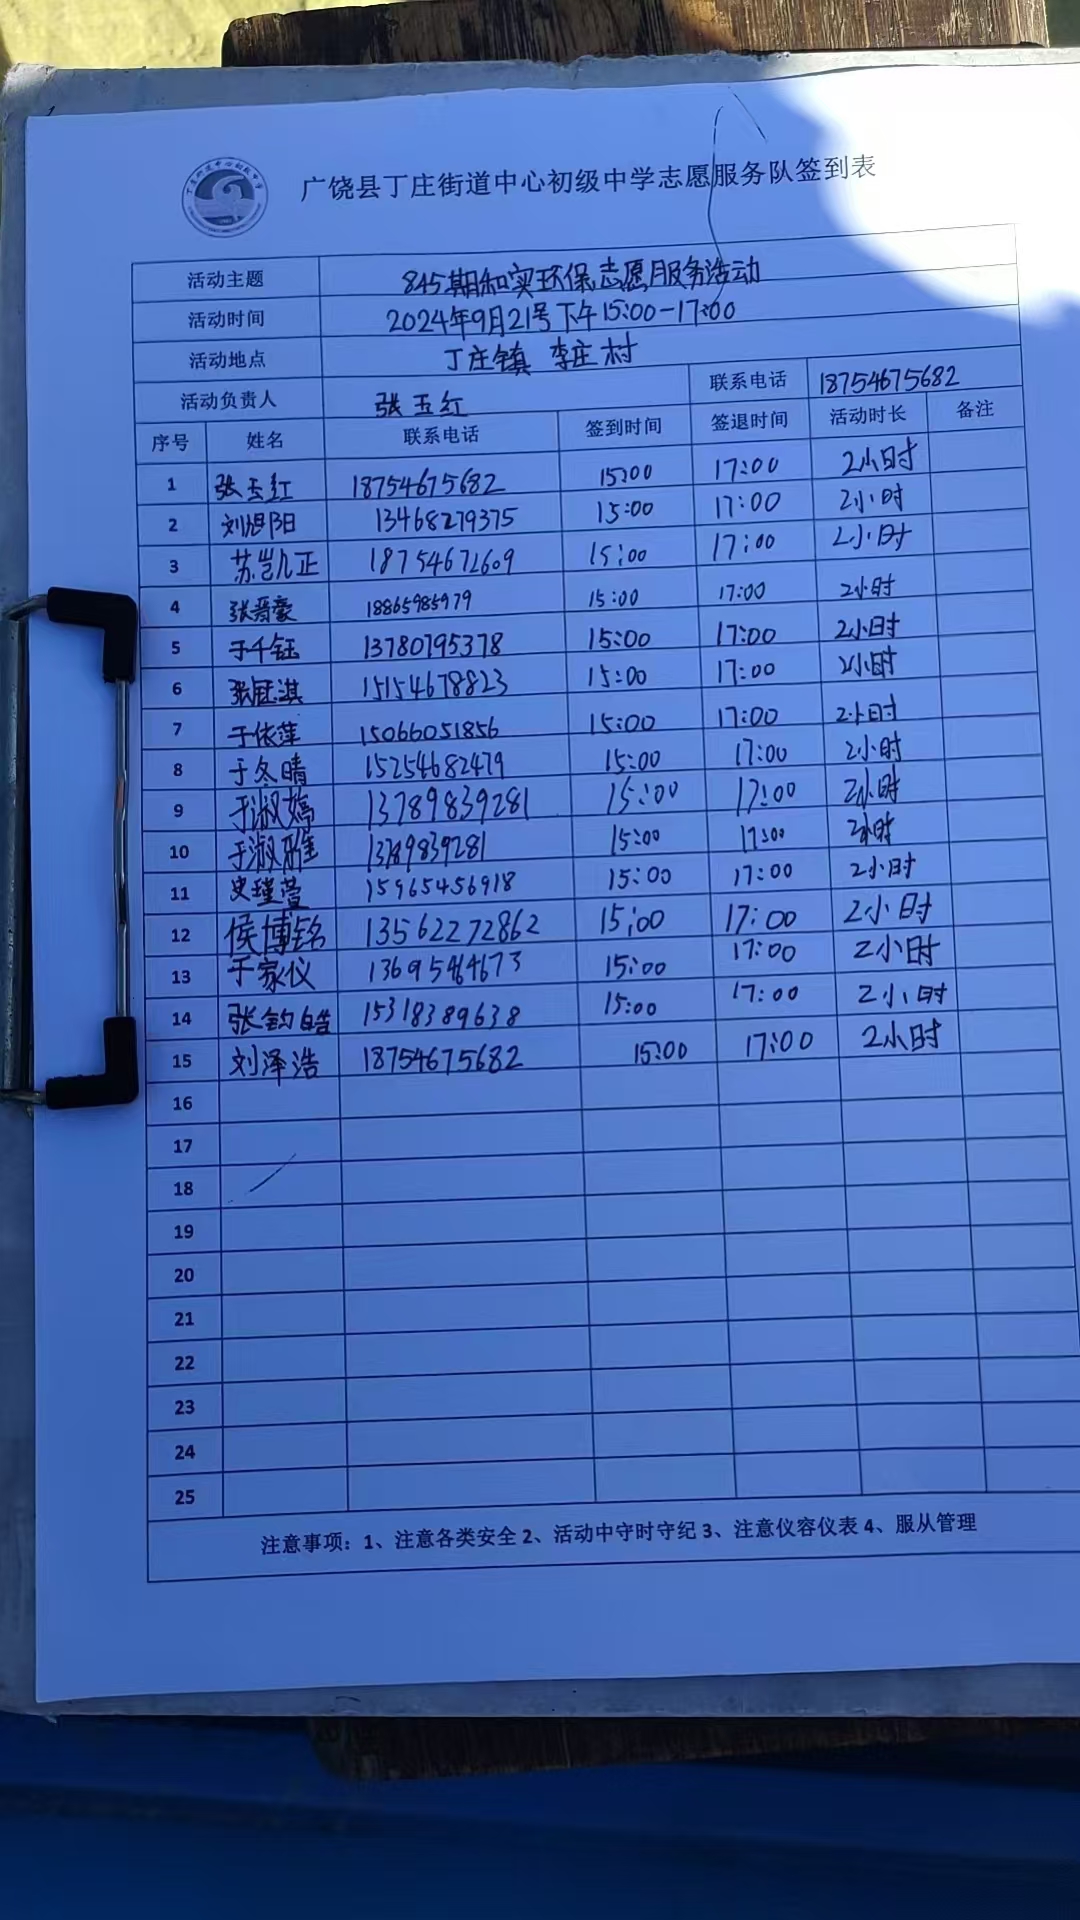 广饶县丁庄街道中心初级中学志愿服务队签到表
活动主题 845期和实环保志愿服务活动
活动时间 2024年9月21号下午15:00-17:00
活动地点 丁庄镇 李庄村
活动负责人 张玉红 联系电话 18754675682
序号 姓名 联系电话 签到时间 签退时间 活动时长 备注
1 张玉红 18754675682 15:00 17:00 2小时
2 刘旭阳 13468279375 15:00 17:00 2小时
3 苏凯正 18754672609 15:00 17:00 2小时
4 张晋豪 18865985979 15:00 17:00 2小时
5 于千钰 13780795378 15:00 17:00 2小时
6 张钰淇 15154678823 15:00 17:00 2小时
7 于依萍 15066051856 15:00 17:00 2小时
8 于冬晴 15254682479 15:00 17:00 2小时
9 于淑嫣 13789839281 15:00 17:00 2小时
10 于淑雅 13789839281 15:00 17:00 2小时
11 史瑾萱 15965456918 15:00 17:00 2小时
12 侯博铭 13562272862 15:00 17:00 2小时
13 于家仪 15:00 17:00 2小时
14 张钧皓 15318389638 15:00 17:00 2小时
15 刘泽浩 18754675682 15:00 17:00 2小时
16
17
18
19
20
21
22
23
24
25
注意事项：1、注意各类安全 2、活动中守时守纪 3、注意仪容仪表 4、服从管理